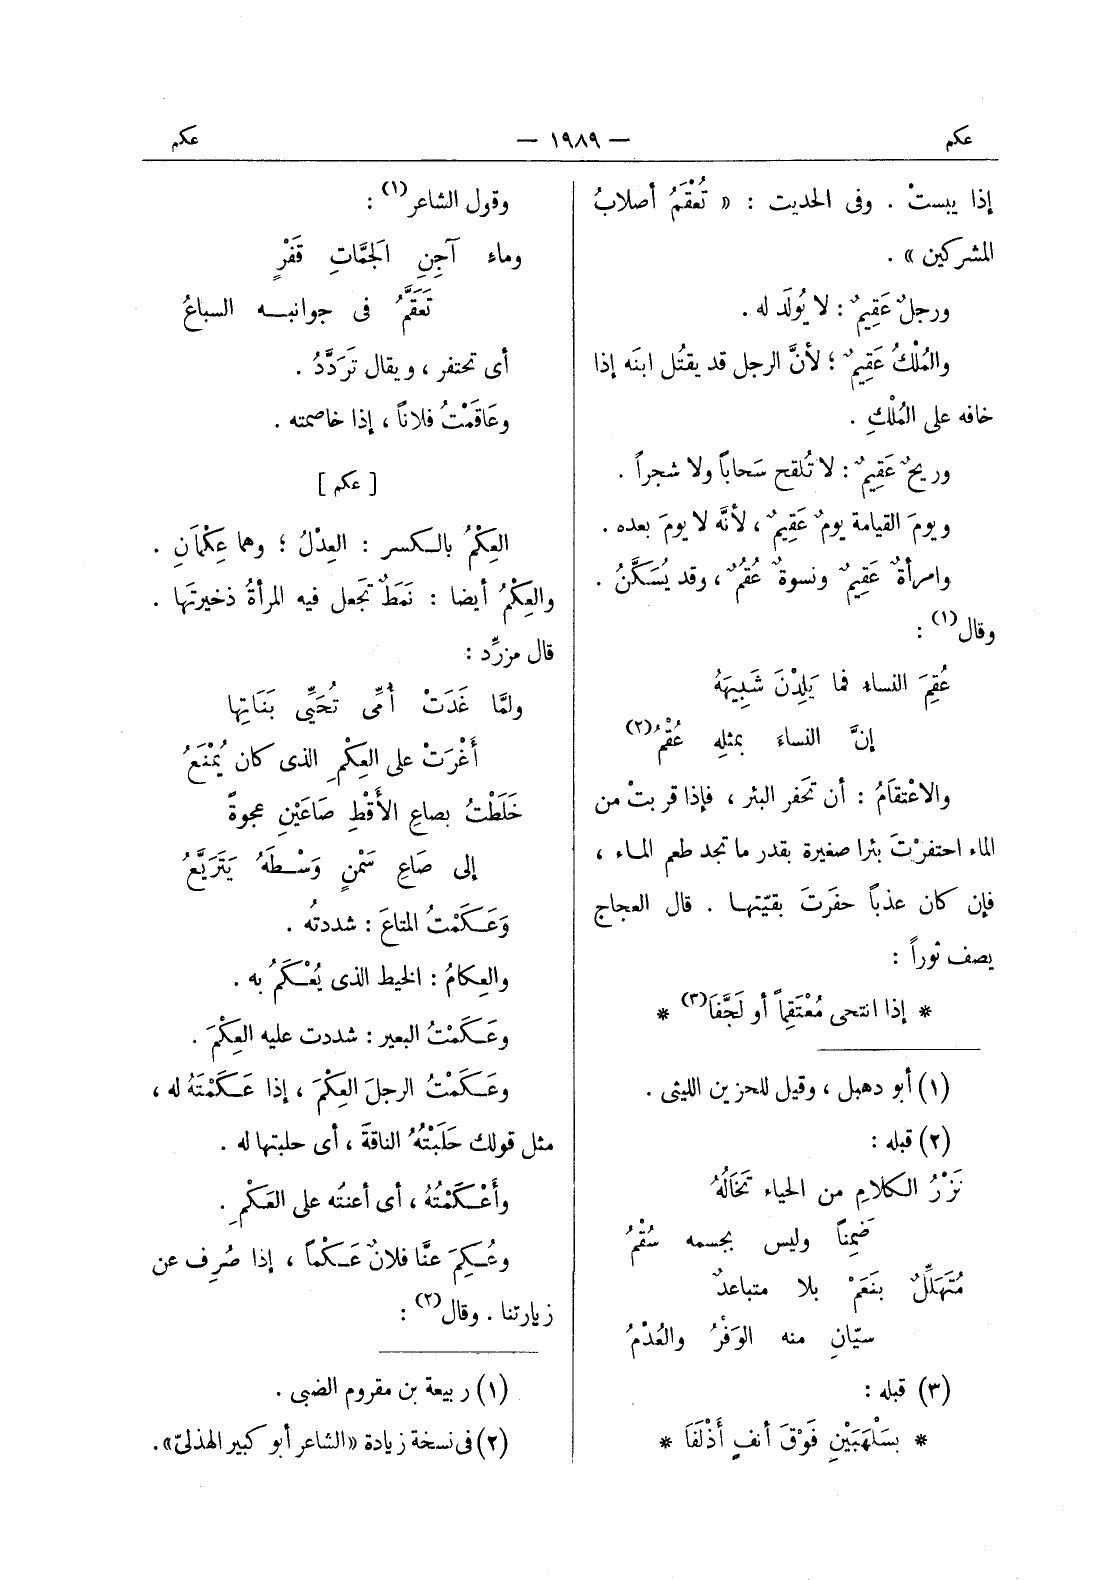 عكم — ١٩٨٩ — عكم
إذا يبستْ . وفى الحديت : « تُعْقَمُ أصلابُ
المشركين » .
ورجلٌ عَقِيمٌ : لا يُولَد له .
والمُلْكُ عَقِيمٌ ؛ لأنَّ الرجل قد يقتُل ابنَه إذا
خافه على المُلْكِ .
وريحٌ عَقِيمٌ : لا تُلقح سَحاباً ولا شجراً .
ويومَ القيامة يومٌ عَقِيمٌ ، لأنَّه لا يومَ بعده .
وامرأةٌ عَقِيمٌ ونسوةٌ عُقُمٌ ، وقد يُسَكَّنُ .
وقال(١) :
عُقِمَ النساء فما يَلِدْنَ شَبِيهَهُ
إنَّ النساءَ بمثلِه عُقْمُ(٢)
والاعْتِقامُ : أن تحَفر البئر ، فإذا قربتْ من
الماء احتفرْتَ بئرا صغيرة بقدر ما تجد طعم الماء ،
فإن كان عذباً حفَرتَ بقيّتها . قال العجاج
يصف ثوراً :
* إذا انتحى مُعْتَقِماً أو لَجَّفَا(٣) *
(١) أبو دهبل ، وقيل للحزين الليثى .
(٢) قبله :
نَزْرُ الكلامِ من الحياء تَخَالُهُ
ضَمِناً وليس بجسمه سُقْمُ
مُتَهَلِّلٌ بنَعَمْ بلا متباعدٌ
سيّانِ منه الوَفْرُ والعُدْمُ
(٣) قبله :
* بسَلْهَبَيْنِ فَوْقَ أنفٍ أَذْلَفَا *
وقول الشاعر(١) :
وماء آجِنِ الجَمَّاتِ قَفْرٍ
تَعَقَّمُ فى جوانبه السباعُ
أى تحتفر ، ويقال تَرَدَّدُ .
وعَاقَمْتُ فلاناً ، إذا خاصمته .
[ عكم ]
العِكْمُ بالكسر : العِدْلُ ؛ وهما عِكْمَانِ .
والعِكْمُ أيضا : نَمَطٌ تَجعل فيه المرأةُ ذخيرتَها .
قال مزرِّد :
ولمَّا غَدَتْ أُمِّى تُحَيِّى بَنَاتِها
أَغَرْتُ على العِكْمِ الذى كان يُمْنَعُ
خَلَطْتُ بصاعِ الأَقْطِ صَاعَيْنِ عجوةً
إلى صَاعِ سَمْنٍ وَسْطَهُ يَتَرَيَّعُ
وَعَكَمْتُ المتاعَ : شددتُه .
والعِكامُ : الخيط الذى يُعْكَمُ به .
وعَكَمْتُ البعير : شددت عليه العِكْمَ .
وعَكَمْتُ الرجلَ العِكْمَ ، إذا عَكَمْتَهُ له ،
مثل قولك حَلَبْتُهُ الناقةَ ، أى حلبتها له .
وأَعْكَمْتُهُ ، أى أعنتُه على العَكْمِ .
وعُكِمَ عنَّا فلانٌ عَكْماً ، إذا صُرِف عن
زيارتنا . وقال(٢) :
(١) ربيعة بن مقروم الضبى .
(٢) فى نسخة زيادة «الشاعر أبو كبير الهذلىّ».